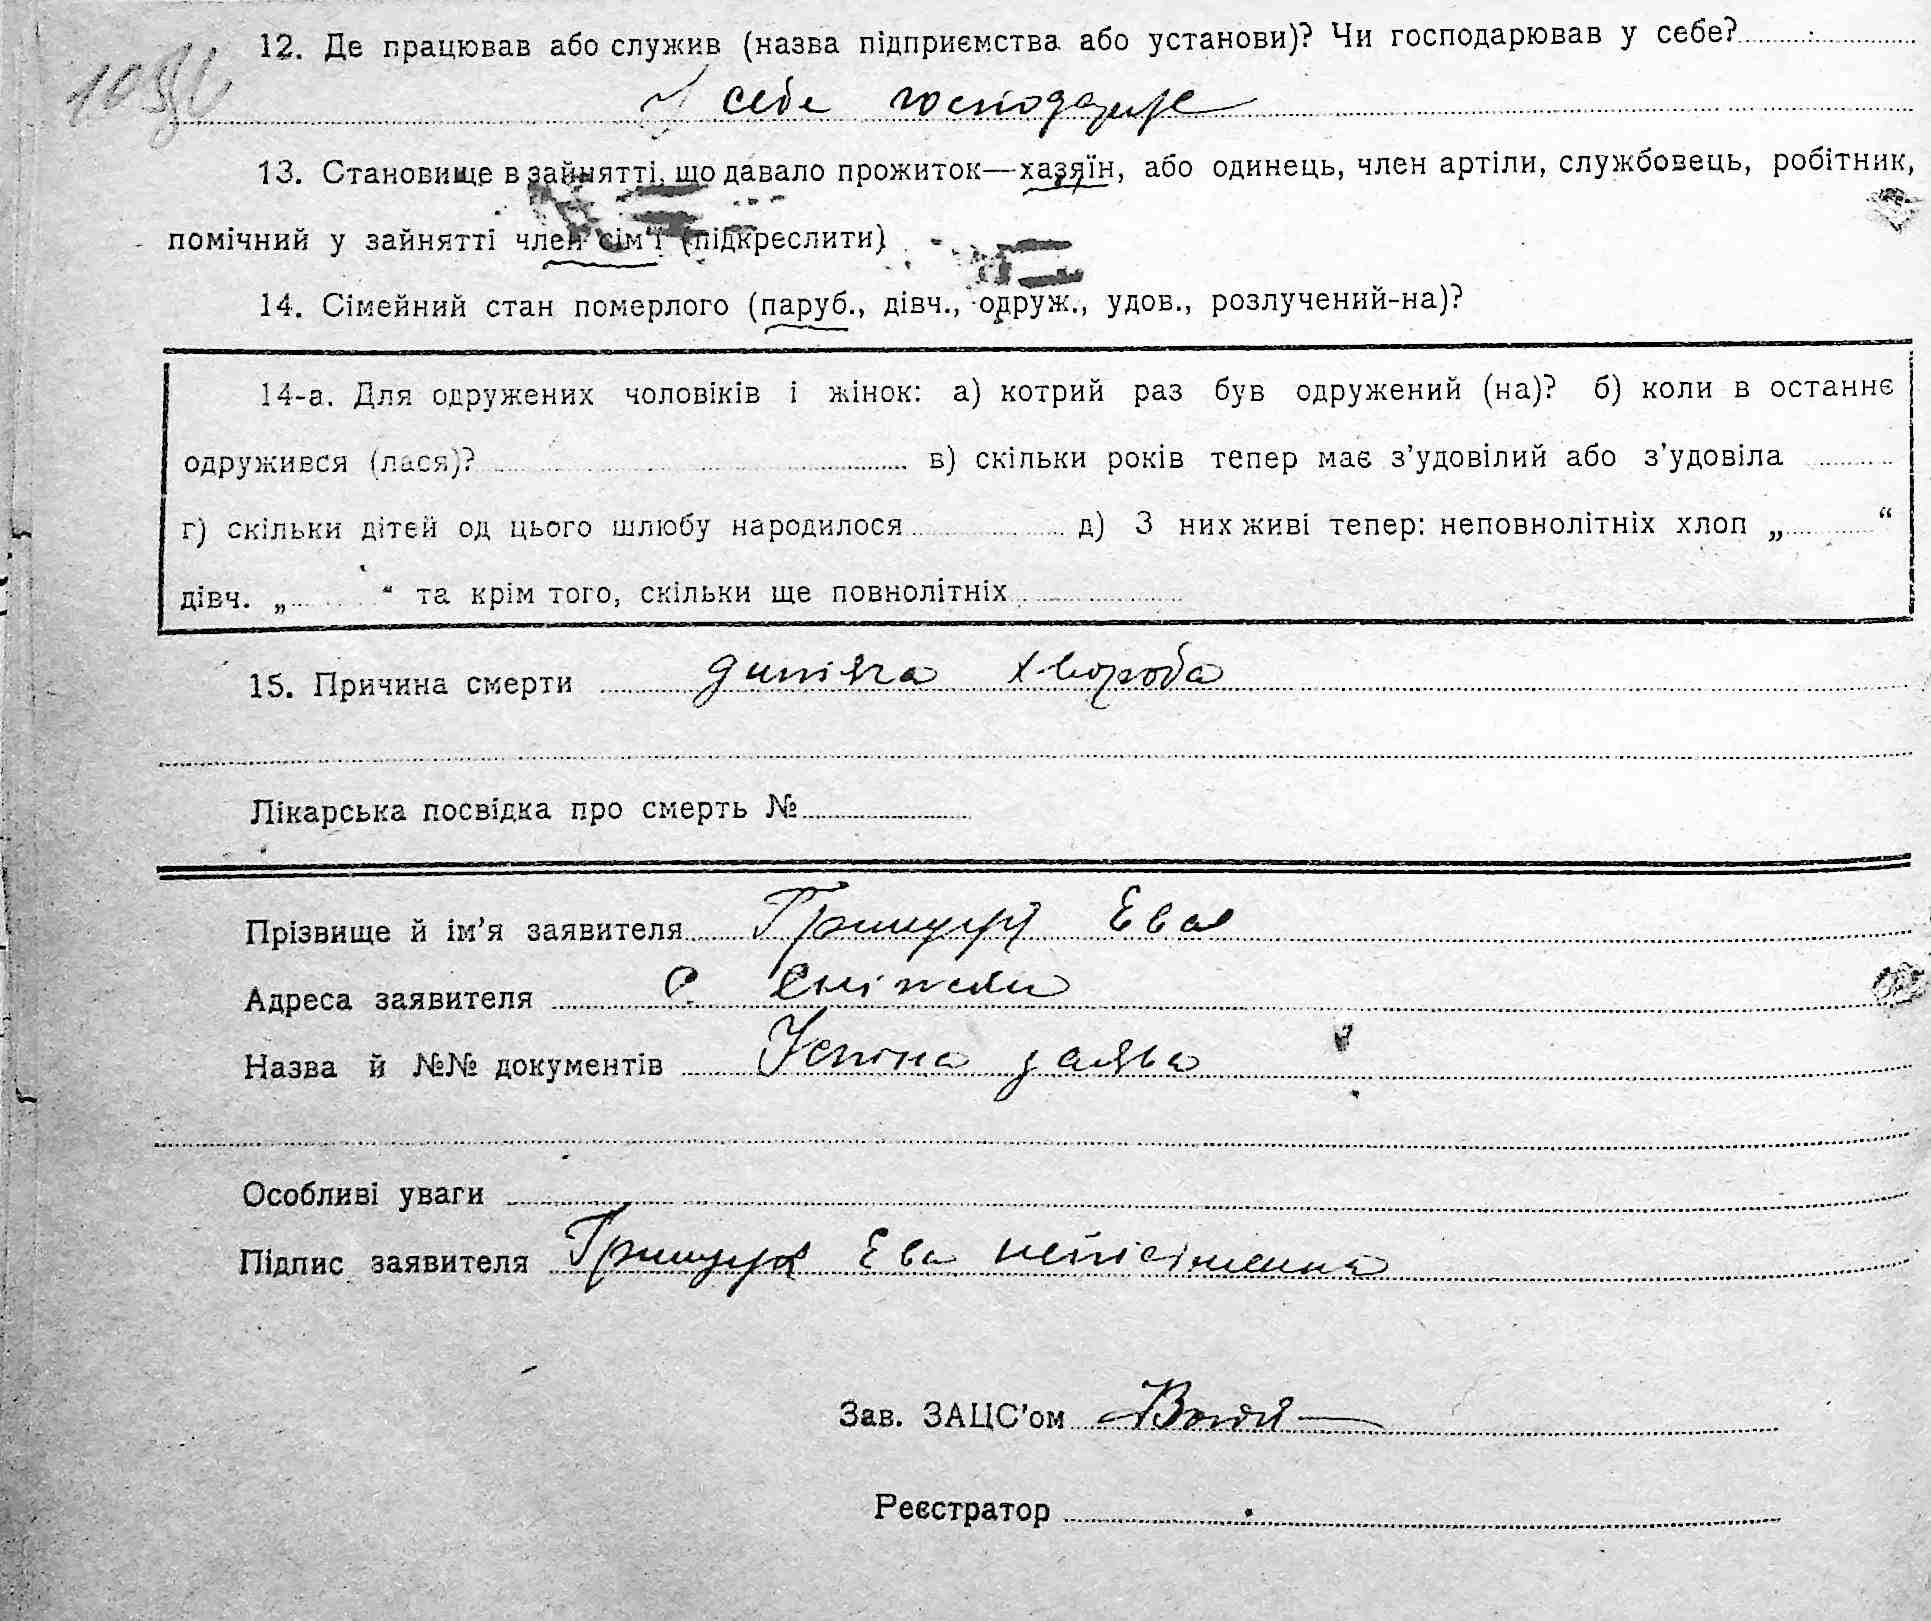 12. Де працював або служив (назва підприємства або установи)? Чи господарював у себе?
У себе господарює
13. Становище в зайнятті, що давало прожиток—хазяїн, або одинець, член артіли, службовець, робітник,
помічний у зайнятті член сім'ї (підкреслити)
14. Сімейний стан померлого (паруб., дівч., одруж., удов., розлучений-на)?
14-а. Для одружених чоловіків і жінок: а) котрий раз був одружений (на)? б) коли в останнє
одружився (лася)? в) скільки років тепер має з'удовілий або з'удовіла
г) скільки дітей од цього шлюбу народилося д) З них живі тепер: неповнолітніх хлоп „ “
дівч. „ “ та крім того, скільки ще повнолітніх
15. Причина смерти дитяча хвороба
Лікарська посвідка про смерть №
Прізвище й ім'я заявителя Грищук Ева
Адреса заявителя с.
Назва й №№ документів Устна заява
Особливі уваги
Підпис заявителя Грищук Ева неписьменна
Зав. ЗАЦС'ом
Реєстратор